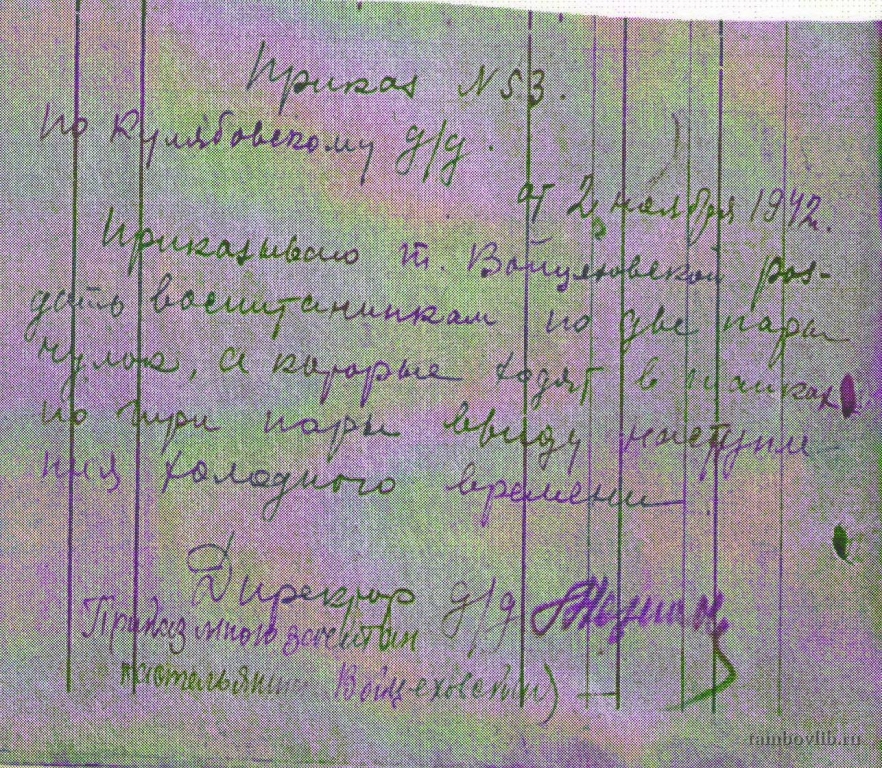 Приказ № 53.
по Кулябовскому д/д.
от 2 ноября 1942.
Приказываю т. Войцеховской раз-
дать воспитаникам по две пары
чулок, а которые ходят в тапках
по три пары ввиду наступле-
ния холодного времени
Директор д/д
Приказ мною зачитан
кастелянши Войцеховской)
rainbovlib.ru